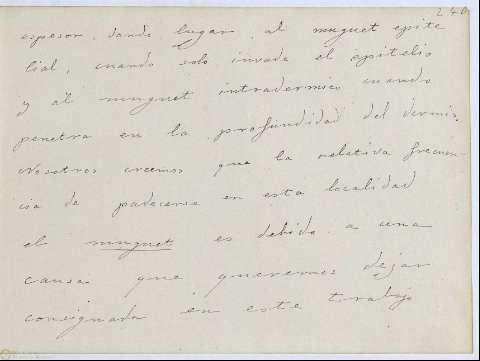 240
espesor, dando lugar al muguet epite
lial, cuando solo invade el epitelio
y al muguet intradermico cuando
penetra en la profundidad del dermis.
Nosotros creemos que la relativa frecuen
cia de padecerse en esta localidad
el muguet es debida a una
causa que queremos dejar
consignada en este trabajo